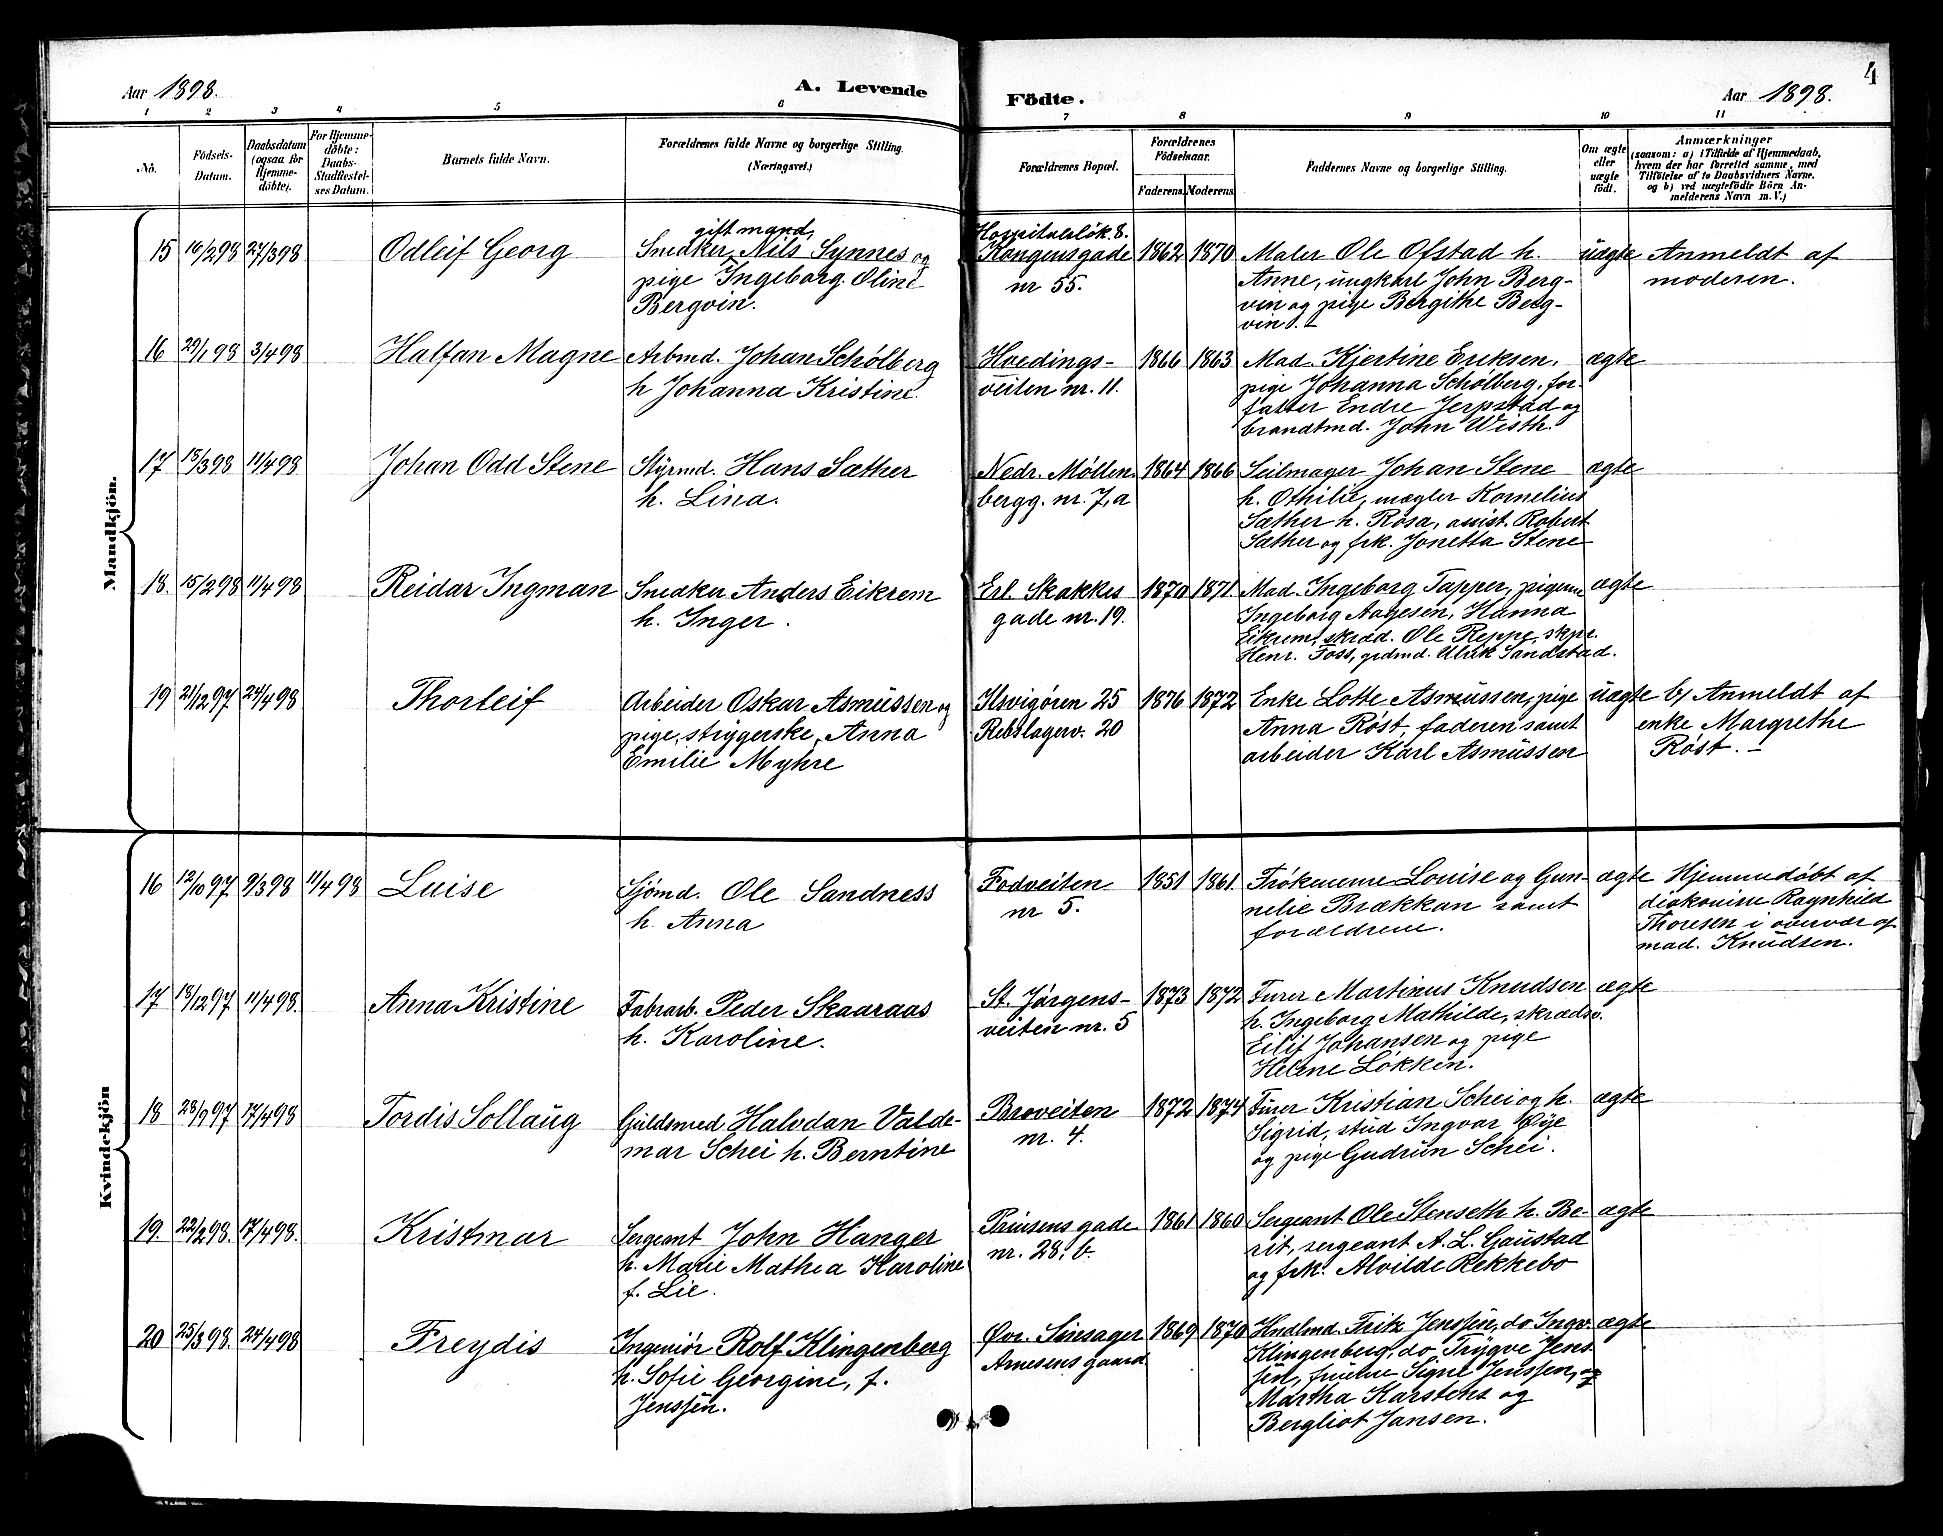 Aar 1898.
A. Levende
Födte.
Aar 1898.
4
1 2 3 4 5 6 7 8 9 10 11
No.
Födsels-
Datum.
Daabsdatum
(ogsaa for
Hjemme-
döbte).
For Hjemme-
döbte:
Daabs-
Stadfæstel-
ses Datum.
Barnets fulde Navn.
Forældrenes fulde Navne og borgerlige Stilling.
(Næringsvei.)
Forældrenes Bopæl.
Forældrenes
Födselsaar.
Faderens. Moderens.
Faddernes Navne og borgerlige Stilling.
Om ægte
eller
uægte
födt.
Anmærkninger
(saasom: a) i Tilfælde af Hjemmedaab,
hvem der har forrettet samme, med
Tilföielse af to Daabsvidners Navne,
og b) ved uægtefödte Börn An-
melderens Navn m. V.)
Mandkjön.
15 16/2 98 27/3 98
Odleif Georg
gift mand,
Snedker Nils Synnes og
pige Ingeborg Oline
Bergvin.
Hospitalsløk. 8.
Kongensgade
nr 55.
1862 1870
Maler Ole Ofstad h.
Anne, ungkarl John Berg-
vin og pige Bergithe Berg-
vin. -
uægte
Anmeldt af
moderen.
16 29/1 98 3/4 98
Halfan Magne
Arbmd. Johan Schølberg
h Johanna Kristine.
Hvedings-
veiten nr. 11.
1866 1863
Mad. Kjerstine Eriksen,
pige Johanna Schølberg, for-
fatter Endre Jerpstad og
brandtmd. John Wisth.
ægte
17 18/3 98 11/4 98
Johan Odd Stene
Styrmd. Hans Sæther
h. Lina.
Nedr. Møllen-
bergg. nr. 7, a
1864 1866
Seilmager Johan Stene
h. Othilie, mægler Kornelius
Sæther h. Rosa, assist. Robert
Sæther og frk. Jonetta Stene
ægte
18. 15/2 98 11/4 98
Reidar Ingman
Snedker Anders Eikrem
h. Inger.
Erl. Skakkes
gade nr. 19.
1870 1871.
Mad. Ingeborg Tapper, pigerne
Ingeborg Aagesen, Hanna
Eikrem, skræd. Ole Reppe, skpr.
Henr. Foss, grdmd. Ulrik Sandstad.
ægte
19 21/12 97 24/4 98
Thorleif
Arbeider Oskar Asmussen og
pige, strygerske, Anna
Emilie Myhre
Ilsvigøren 25
Rebslagerv. 20
1876 1872
Enke Lotte Asmussen, pige
Anna Røst, faderen samt
arbeider Karl Asmussen
uægte
b/ Anmeldt af
enke Margrethe
Røst. -
Kvindekjön
16 12/10 97. 9/3 98 11/4 98
Luise
Sjømd. Ole Sandness
h. Anna
Fodveiten
nr 5.
1851 1861.
Frøknerne Louise og Gun-
nelie Brækkan samt
forældrene.
ægte
Hjemmedøbt af
diakonisse Ragnhild
Thoresen i overvær af
mad. Knudsen.
17 18/12 97 11/4 98.
Anna Kristine
Fabrarb. Peder Skaaraas
h. Karoline.
St. Jørgens-
veiten nr. 5
1873 1872
Furer Martinus Knudsen
h. Ingeborg Mathilde, skrædsv.
Eilif Johansen og pige
Helene Løkken.
ægte
18 28/9 97 17/4 98
Tordis Sollaug
Guldsmed Halvdan Valde-
mar Schei h. Berntine
Broveiten
nr. 4.
1872 1874
Furer Kristian Schei og h.
Sigrid, stud Ingvar Øye
og pige Gudrun Schei.
ægte
19. 22/2 98. 17/4 98.
Kristmar
Sergeant John Hanger
h. Marie Mathea Karoline
f. Lie.
Prinsens gade
nr. 28, b.
1861 1860
Sergeant Ole Stenseth h. Be-
rit, sergeant A. L. Gaustad
og frk. Alvilde Rekkebo
ægte
20 25/3 98. 24/4 98
Freydis
Ingeniør Rolf Klingenberg
h. Sofie Georgine, f.
Jenssen.
Øvr. Singsager
Arnesens gaard
1869 1870
Hndlmd. Fritz Jenssen, do Ingv.
Klingenberg, do Trygve Jens-
sen, fruerne Signe Jenssen,
Martha Karstens og
Bergliot Jansen.
ægte